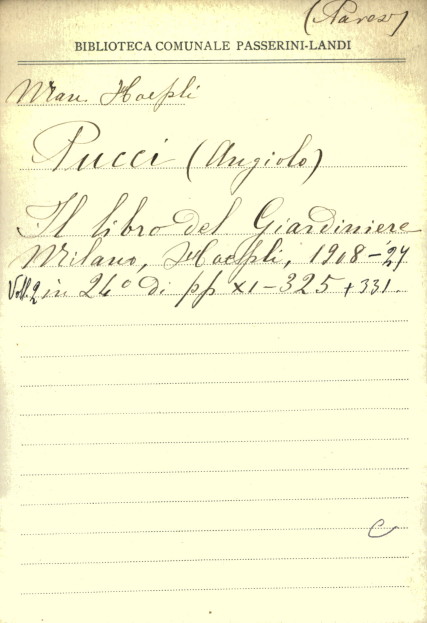 BIBLIOTECA COMUNALE PASSERINI-LANDI
Man. Hoepli
Pucci (Angiolo)
Il libro del Giardiniere
Milano, Hoepli, 1908-'27
Voll. 2 in 24° di pp XI-325+331.
C